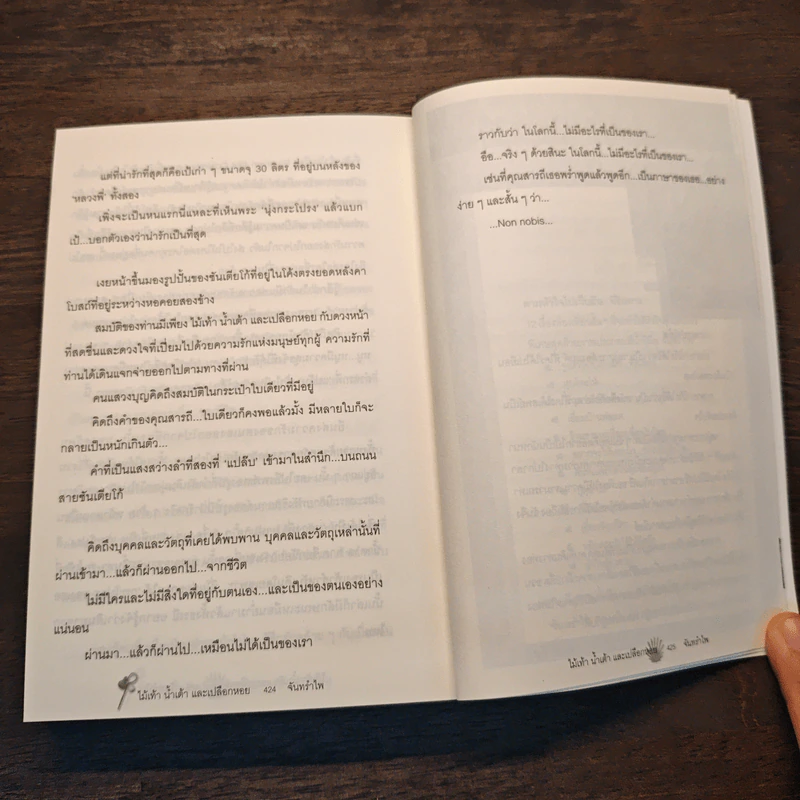 แต่ที่น่ารักที่สุดก็คือเป้เก่า ๆ ขนาดจุ 30 ลิตร ที่อยู่บนหลังของ
'หลวงพี่' ทั้งสอง
เพิ่งจะเป็นหนแรกนี่แหละที่เห็นพระ 'นุ่งกระโปรง' แล้วแบก
เป้...บอกตัวเองว่าน่ารักเป็นที่สุด
เงยหน้าขึ้นมองรูปปั้นของซันเตียโก้ที่อยู่ในโค้งตรงยอดหลังคา
โบสถ์ที่อยู่ระหว่างหอคอยสองข้าง
สมบัติของท่านมีเพียง ไม้เท้า น้ำเต้า และเปลือกหอย กับดวงหน้า
ที่สดชื่นและดวงใจที่เปี่ยมไปด้วยความรักแห่งมนุษย์ทุกผู้ ความรักที่
ท่านได้เดินแจกจ่ายออกไปตามทางที่ผ่าน
คนแสวงบุญคิดถึงสมบัติในกระเป๋าใบเดียวที่มีอยู่
คิดถึงคำของคุณสารถี...ใบเดียวก็คงพอแล้วมั้ง มีหลายใบก็จะ
กลายเป็นหนักเกินตัว...
คำที่เป็นแสงสว่างลำที่สองที่ 'แปล๊บ' เข้ามาในสำนึก...บนถนน
สายซันเตียโก้
คิดถึงบุคคลและวัตถุที่เคยได้พบพาน บุคคลและวัตถุเหล่านั้นที่
ผ่านเข้ามา...แล้วก็ผ่านออกไป...จากชีวิต
ไม่มีใครและไม่มีสิ่งใดที่อยู่กับตนเอง...และเป็นของตนเองอย่าง
แน่นอน
ผ่านมา...แล้วก็ผ่านไป...เหมือนไม่ได้เป็นของเรา
ไม้เท้า น้ำเต้า และเปลือกหอย 424 จันทรำไพ
ราวกับว่า ในโลกนี้...ไม่มีอะไรที่เป็นของเรา...
อือ...จริง ๆ ด้วยสินะ ในโลกนี้...ไม่มีอะไรที่เป็นของเรา...
เช่นที่คุณสารถีเธอพร่ำพูดแล้วพูดอีก...เป็นภาษาของเธอ...อย่าง
ง่าย ๆ และสั้น ๆ ว่า...
...Non nobis...
ไม้เท้า น้ำเต้า และเปลือกหอย 425 จันทรำไพ